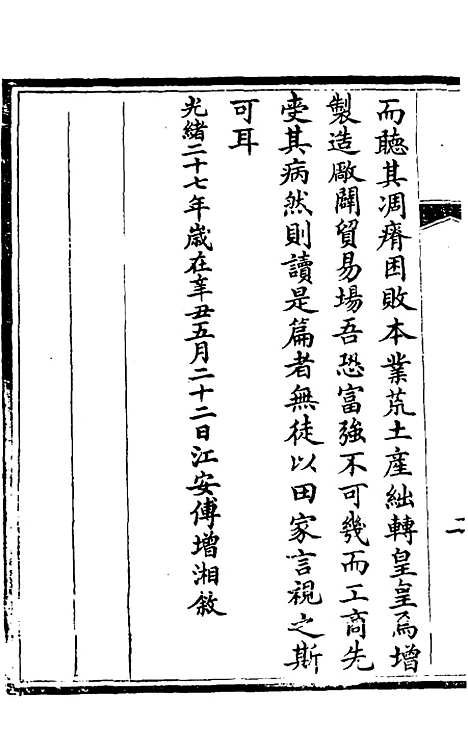 而聽其凋瘠困敗本業荒土產絀轉皇皇焉增
製造厰闢貿易場吾恐富強不可幾而工商先
受其病然則讀是篇者無徒以田家言視之斯
可耳
光緒二十七年歲在辛丑五月二十二日江安傅增湘敘
二